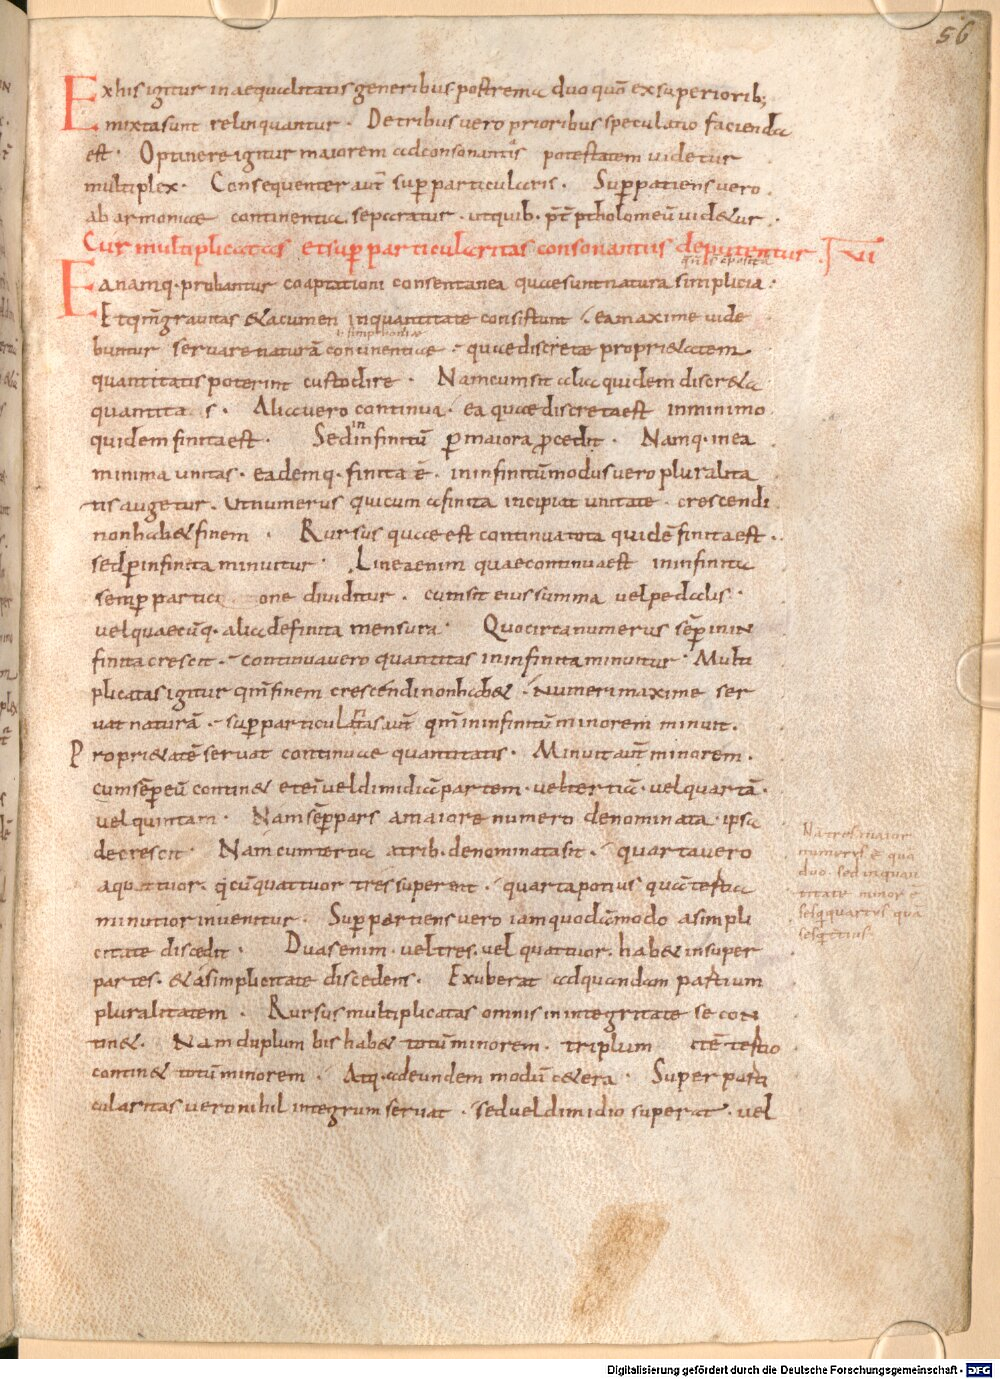 56
Ex his igitur inaequalitatis generibus postrema duo quō ex superiorib;
mixta sunt relinquuntur · De tribus vero prioribus speculatio facienda
est · Optinere igitur maiorem ad consonantias potestatem uidetur
multiplex · Consequenter aut̄ sup̄particularis · Sup̄patiens vero
ab armonicae continentia separatur · ut quib· p̄t ptholomeū uidetur ·
Cur multiplicitas et sup̄particularitas consonantiis deputentur · XVI
Ea namq· probantur coaptationi consentanea quae sunt natura simplicia :
Et qm̄ gravitas & acumen in quantitate consistunt · ea maxime uide
buntur servare naturā continentiae · quae discretae proprietatem
quantitatis poterint custodire · Nam cum sit alia quidem discreta
quantitas · Alia vero continua · ea quae discreta est in minimo
quidem finita est · Sed infinitū p maiora procedit · Namq· in ea
minima unitas · eademq· finita ē · in infinitū modus vero pluralita
tis augetur · Ut numerus qui cum a finita incipiat unitate · crescendi
non hab& finem · Rursus quae est continua tota quidē finita est ·
sed p infinita minuitur · Linea enim quae continua est in infinita
semp partitione dividitur · cum sit eius summa vel pedalis ·
vel quaecūq· alia definita mensura · Quocirca numerus sēp in in
finita crescit · continua vero quantitas in infinita minuitur · Multi
plicitas igitur qm̄ finem crescendi non hab& · Numeri maxime ser
vat naturā · sup̄particularitas aut̄ qm̄ in infinitū minorem minuit ·
Proprietatē servat continuae quantitatis · Minuit aut̄ minorem ·
cum sēp eū contin& et eī vel dimidiā partem · vel tertiā · vel quartā ·
vel quintam · Nam sēp pars a maiore numero denominata ipsa
decrescit · Nam cum tertia a trib· denominata sit · quarta vero
a quattuor · cū quattuor tres superent · quarta potius quā tertia
minutior invenitur · Sup̄partiens vero iam quodāmodo a simpli
citate discedit · Duas enim · vel tres · vel quattuor · hab& insuper
partes · & a simplicitate discedens · Exuberat ad quandam partium
pluralitatem · Rursus multiplicitas omnis in integritate se con
tin& · Nam duplum bis hab& totū minorem · triplum tertio
contin& totū minorem · Atq· ad eundem modū c&era · Super parti
cularitas vero nihil integrum servat · sed vel dimidio superat · vel
maior
numerus ē quā
duo · sed in quan
titate minor ē
sesquartus quā
Digitalisierung gefördert durch die Deutsche Forschungsgemeinschaft · DFG